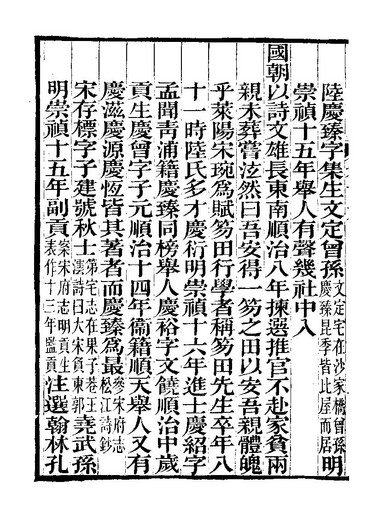 陸慶臻字集生文定曾孫文定宅在沙家橋曾孫慶臻昆季皆比屋而居明
崇禎十五年舉人有聲幾社中入
國朝以詩文雄長東南順治八年揀選推官不赴家貧兩
親未葬嘗泫然曰吾安得一笏之田以安吾親體魄
乎萊陽宋琬為賦笏田行學者稱笏田先生卒年八
十一時陸氏多才慶衍明崇禎十六年進士慶紹字
孟聞青浦籍慶臻同榜舉人慶裕字文饒順治中歲
貢生慶曾字子元順治十四年衞籍順天舉人又有
慶滋慶源慶恆皆其著者而慶臻為最參宋府志松江詩鈔
宋存標字子建號秋士第宅志在果子巷王澐詩曰大宋賁東郭堯武孫
明崇禎十五年副貢案宋府志明貢生表作十三年監貢注選翰林孔